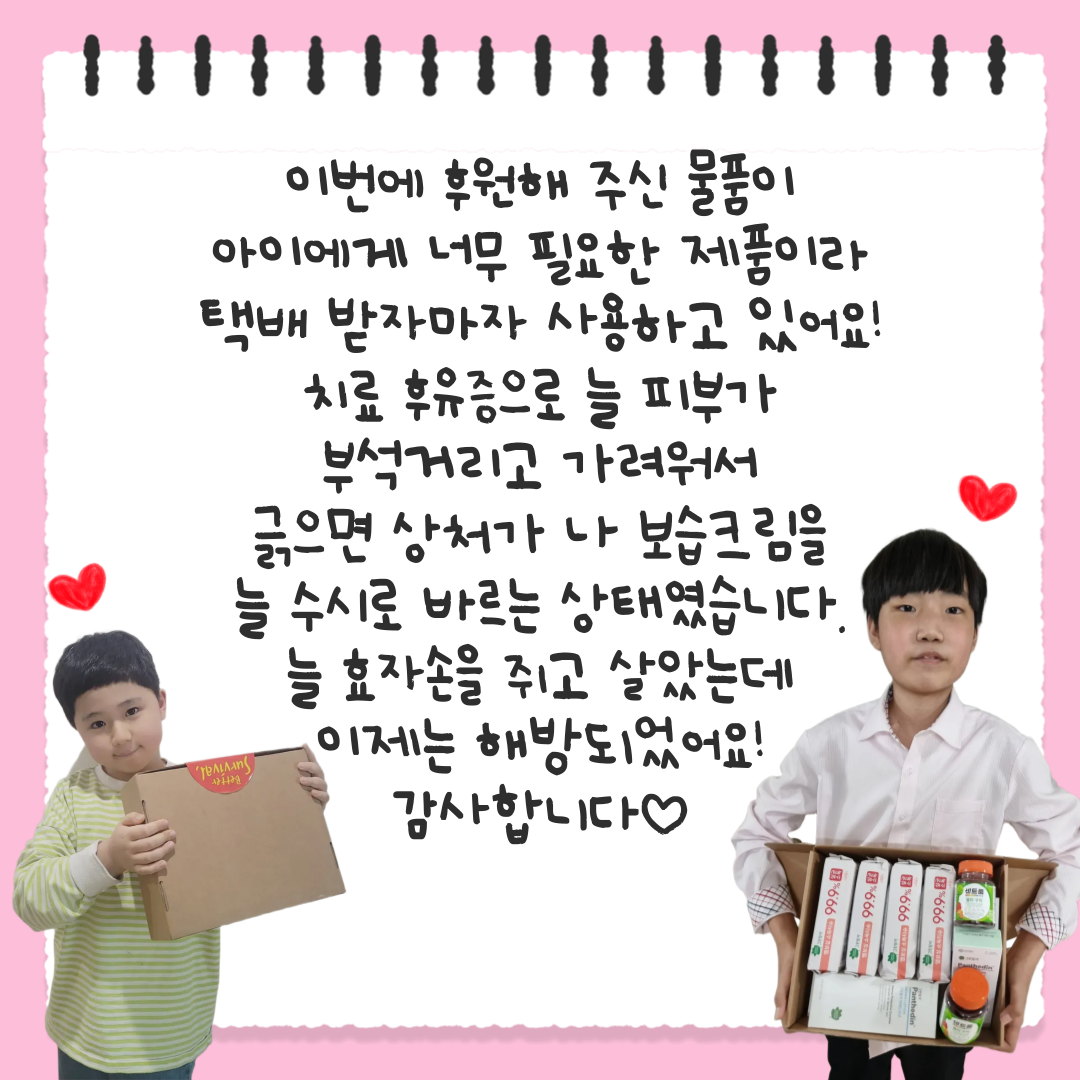 이번에 후원해 주신 물품이
아이에게 너무 필요한 제품이라
택배 받자마자 사용하고 있어요!
치료 후유증으로 늘 피부가
부석거리고 가려워서
긁으면 상처가 나 보습크림을
늘 수시로 바르는 상태였습니다.
늘 효자손을 쥐고 살았는데
이제는 해방되었어요!
감사합니다♡
Better
Survival,
99.9%
99.9%
99.9%
99.9%
Panthedin
Panthedin